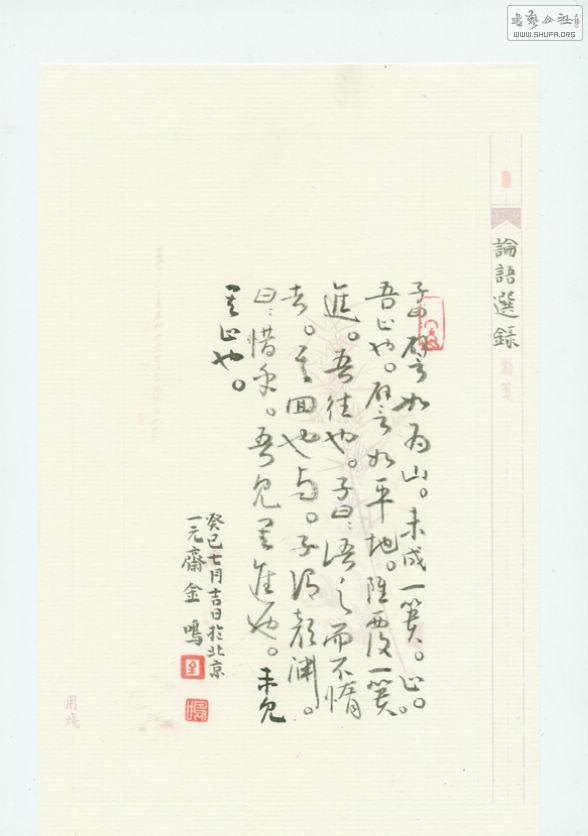 書藝公社
WWW.SHUFA.ORG
論語選錄
子曰譬如為山。未成一簣。止。
吾止也。譬如平地。雖覆一簣。
進。吾往也。子曰：語之而不惰
者。其回也與。子謂顏淵。
曰：惜乎。吾見其進也。未見
其止也。
癸巳七月吉日於北京
一元齋金鳴
用箋